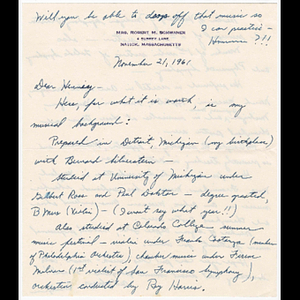 Will you be able to drop off that music so
I can practice –
Hmmm ?!!
MRS. ROBERT M. SCHMIDER
SURREY LANE
NATICK, MASSACHUSETTS
November 21, 1961
Dear Hennesy –
Here, for what it is worth, is my
musical background:
Prepared in Detroit, Michigan (my birthplace)
with Bernard Silverstein –
Studied at University of Michigan under
Gilbert Ross and Paul Doktor – degree granted,
B Mus (Violin) – (I won't say what year!!)
Also studied at Colorado College – summer
music festival – violin under Frank Costanza (member
of Philadelphia Orchestra), chamber music under Ferenc
Molnar (1st violist of San Francisco Symphony),
orchestra conducted by Roy Harris.